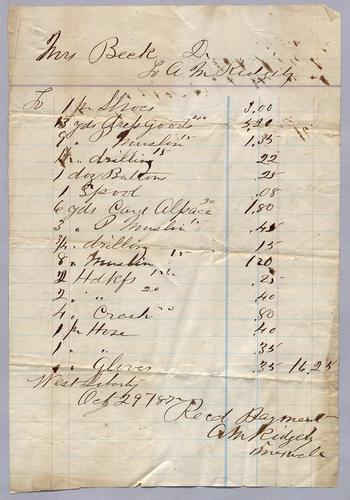 Mrs Beck Dr
To A M Ridgely
To 1 pr Shoes 3.00
13 yds Drep Goods 40 5.20
9 " Muslin 15 1.35
" drilling 15 .22
1 doz Buttons .25
1 Spool .08
6 yds Card Alpaca 30 1.80
3 " P Muslin 15 .45
" drilling .15
8 " Muslin 15 1.20
2 Hdkfs 12½ .25
2 " " 20 .40
4 " Crash 20 .80
1 pr Hose .40
1 " " .35
1 " Gloves .35 16.25
West Liberty
Oct 29 187
Recd Payment
A M Ridgely